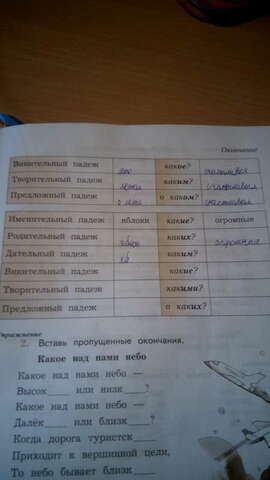 Окончание
Винительный падеж какие?
Творительный падеж каким?
Предложный падеж о каком?
Именительный падеж яблоки какие? огромные
Родительный падеж каких?
Дательный падеж каким?
Винительный падеж какие?
Творительный падеж какими?
Предложный падеж о каких?
Упражнение
2. Вставь пропущенные окончания.
Какое над нами небо
Какое над нами небо —
Высок____ или низк____?
Какое над нами небо —
Далёк____ или близк____?
Когда дорога туристск____
Приходит к вершинной цели,
То небо бывает близк____